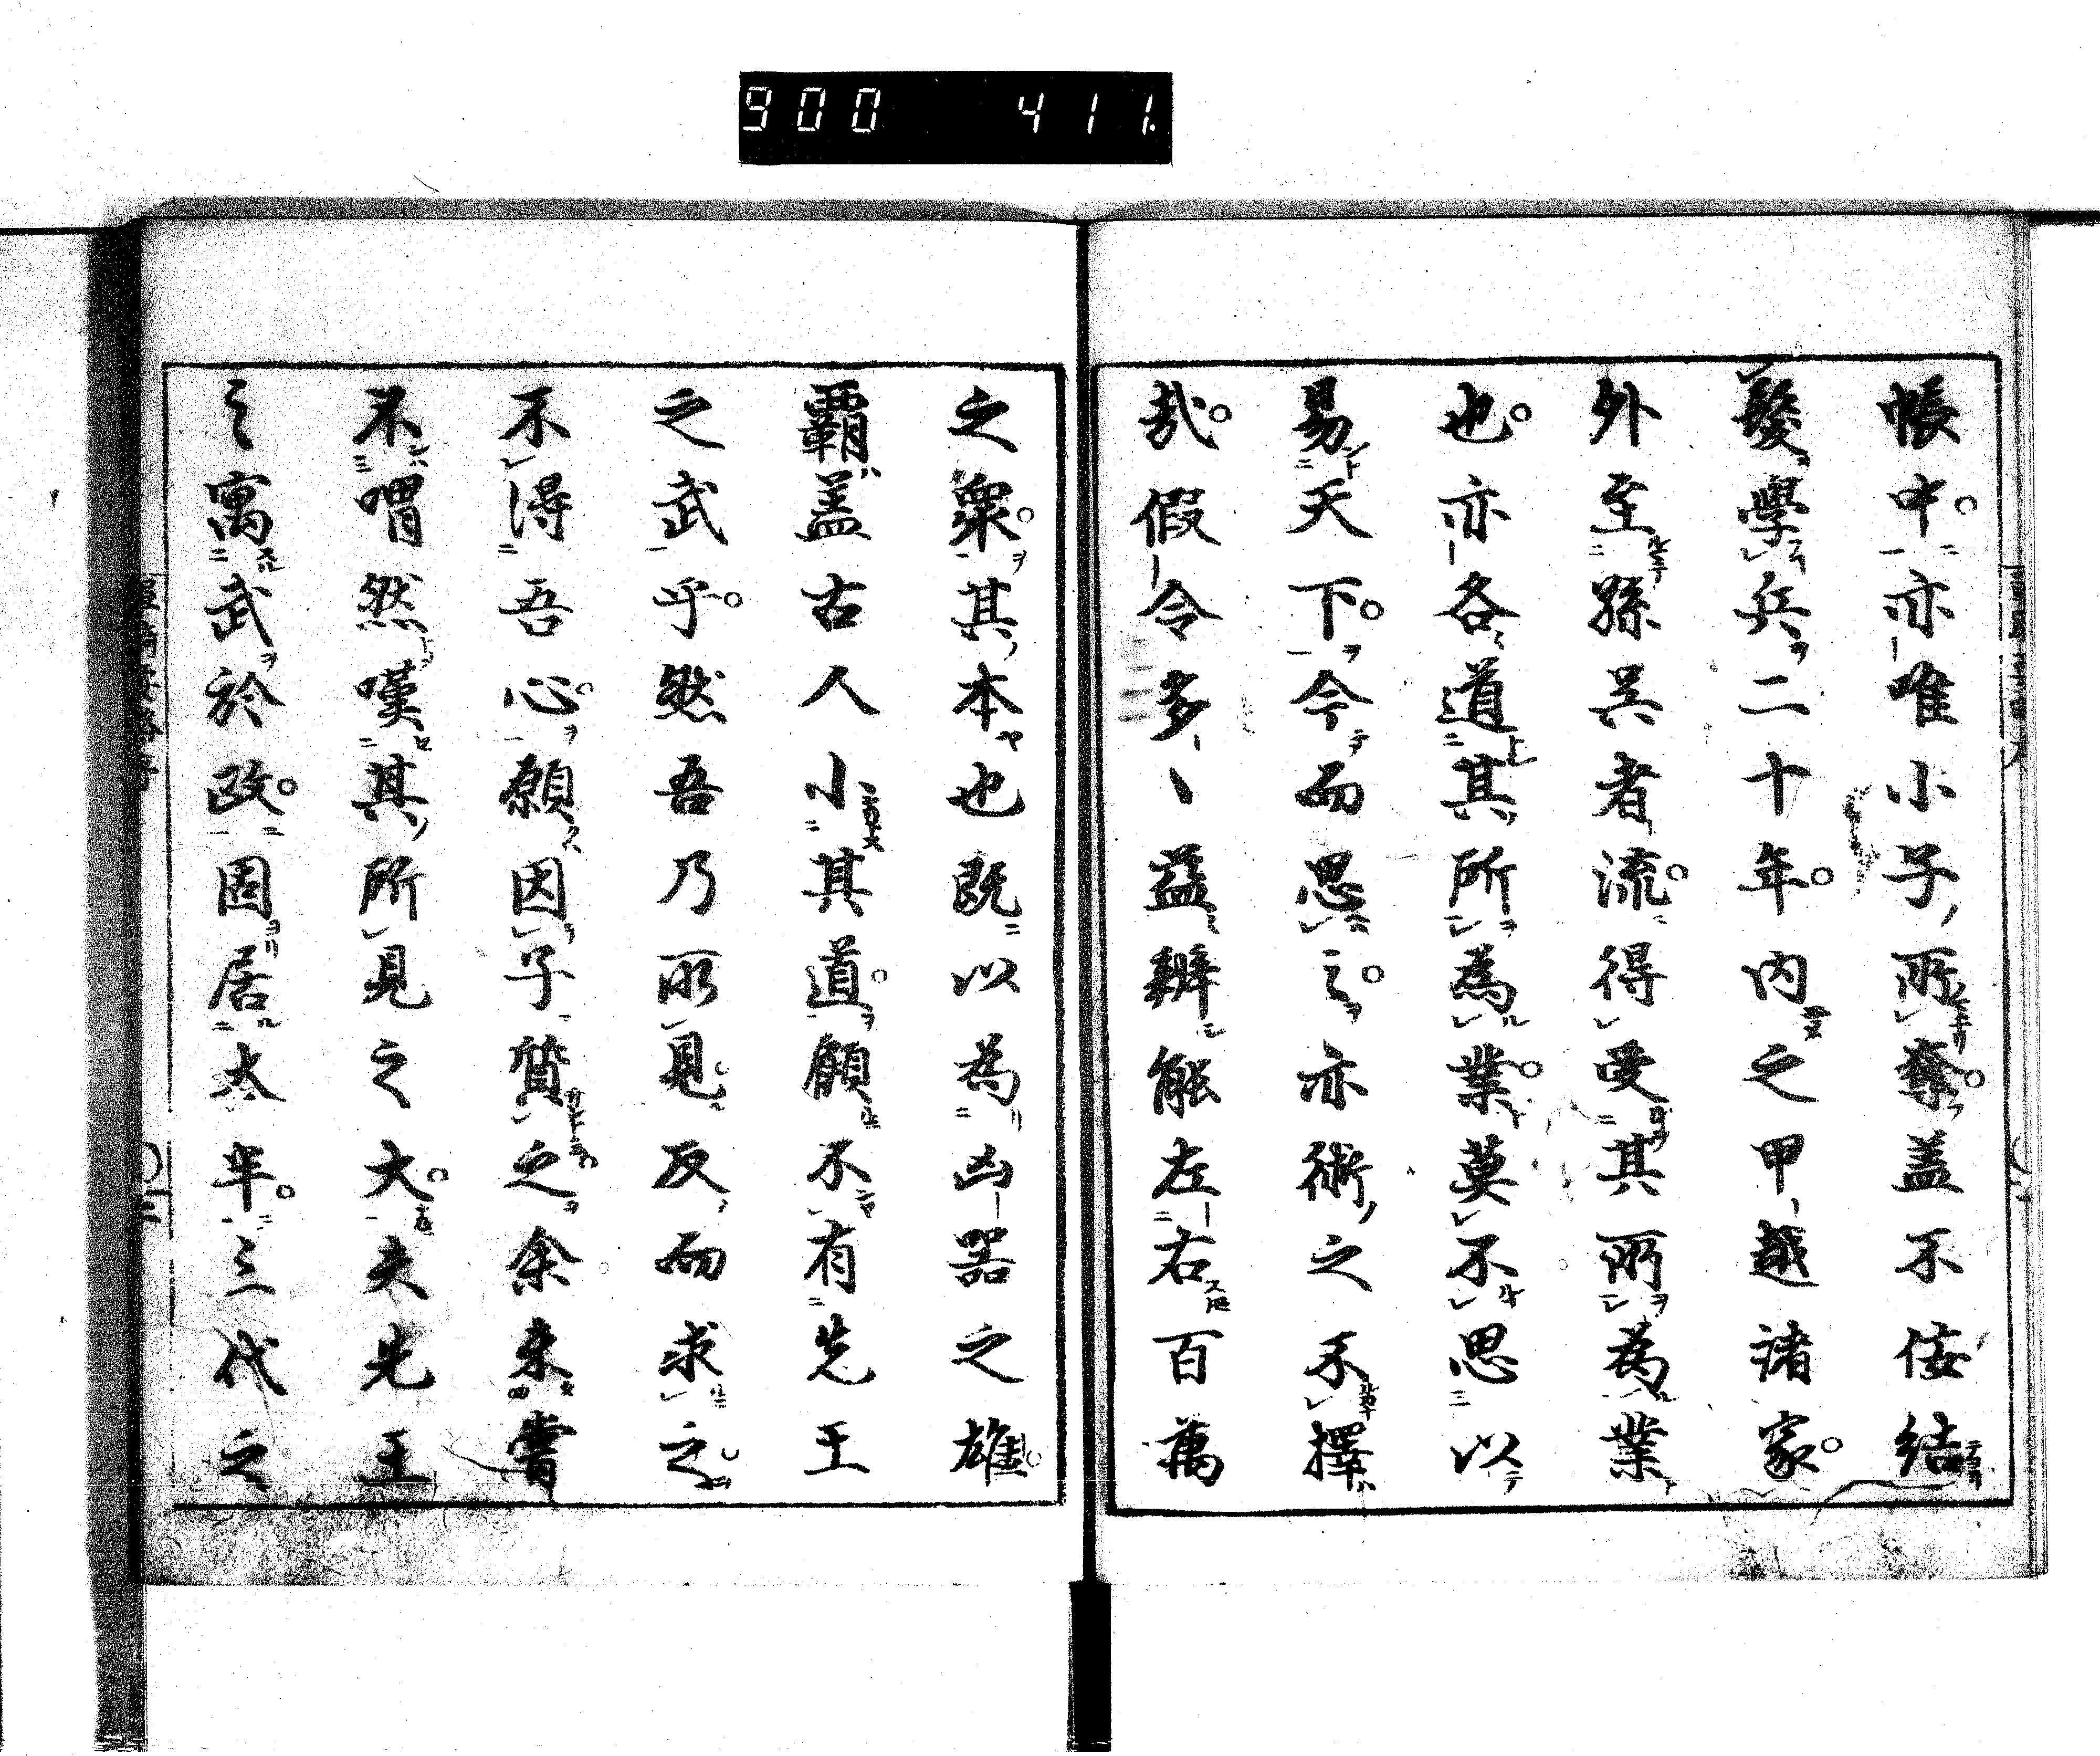 900 411.
帳中亦唯小子所發蓋不佞結
髮學兵二十年内之甲越諸家
外至孫吳者流得受其所為業
也亦各道其所為業莫不思以
易天下今而思之亦術之不擇
哉假令多丶益辨能左右百萬
之衆其本也既以為凶器之雄
覇蓋古人小其道顧不有先王
之武乎然吾乃所見反而求之
不得吾心願因子質之余未嘗
不喟然嘆其所見之大夫先王
之寓武於政固居太半三代之